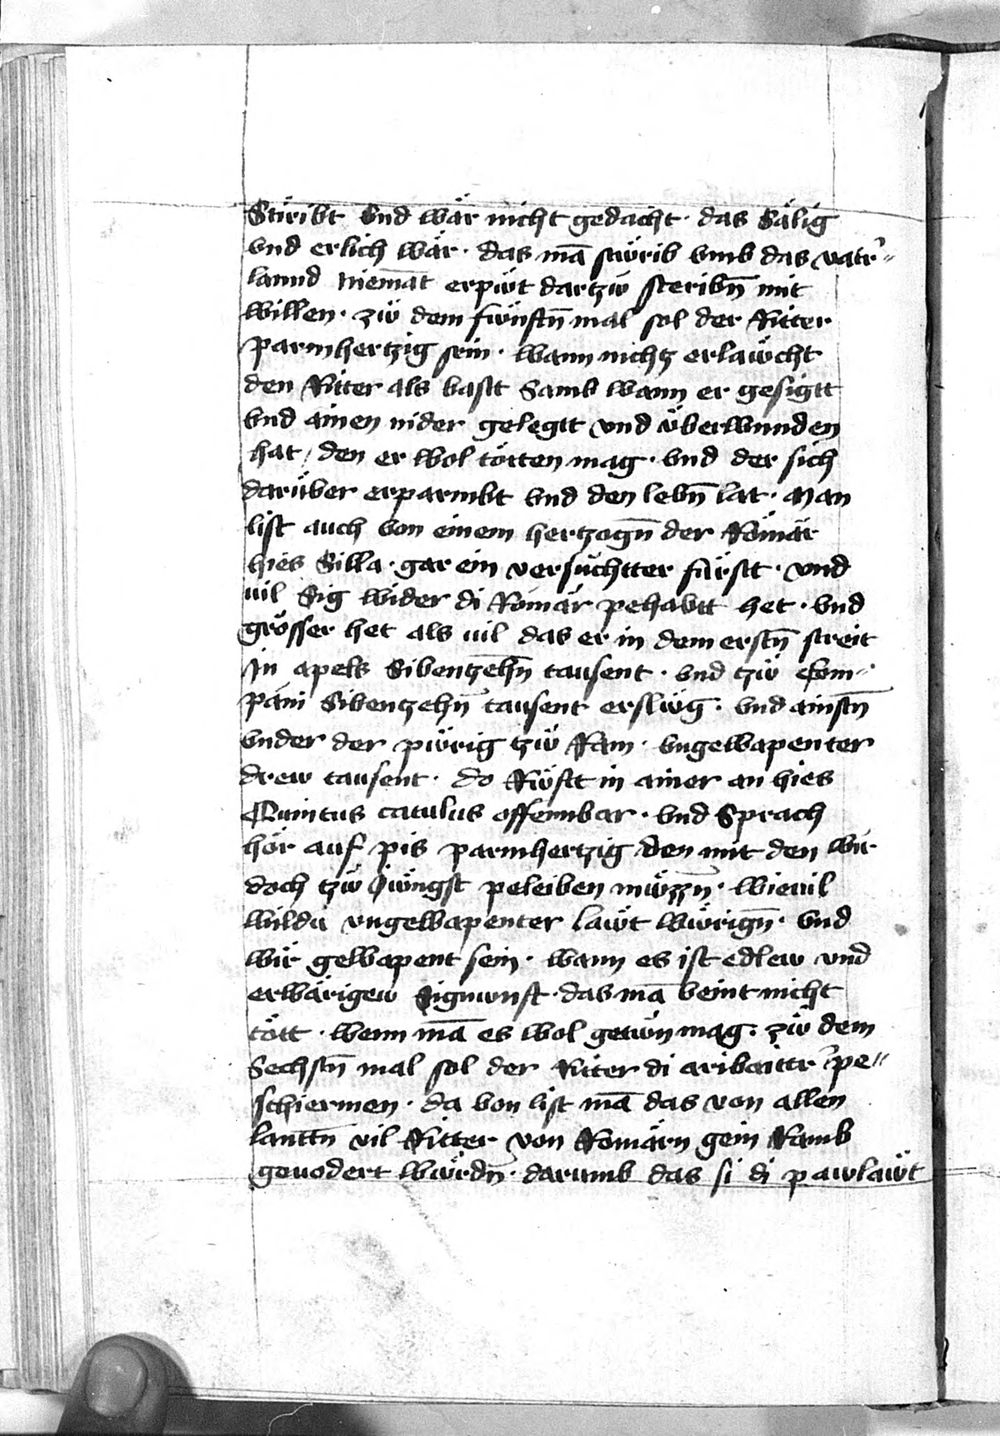 Stiribt Vnd wär nicht gedacht · das Sälig
vnd erlich wär · das mā stürib vmb das vatr̄
lannd Niemāt erpiẅt dartzẅ steribn̄ mit
willen · zẅ dem fẅnftn̄ mal sol der Ritter
parmhertzig sein · wann nichtz erlaẅcht
den Ritter als vasst Samb wann er gesigtt
Vnd ainen nider gelegtt vnd v̈berwunden
hat / den er wol tötten mag · vnd der sich
darüber erparmbt vnd den lebn̄ lat · Man
list auch von einem hertzogn̄ der Römär
hies Silla · gar ein versuchtter fürstt · vnd
uil Sig wider di Römär pehabtt het · Vnd
grösser het als uil das er in dem erstn̄ streit
In apels Sibentzehn̄ tausent · vnd tzẅ
pani Sibentzehn̄ tausent erslẅg · vnd ainstn̄
vnder der pẅrig tzẅ Ram · vngewapenter
drew tausent · do Rẅfft in ainer an hies
Quintus catulus offennbar · vnd Sprach
hör auf pis parmhertzig den mit den wir
doch tzẅ Jẅngst peleiben mẅzzn̄ · wieuil
wildu vngewapenter laẅt wẅrign̄ · Vnd
wir gewapent sein · wann es ist edlew vnd
erwärigew Signunft · das mā veint nicht
tött · wenn mā es wol getẅn mag · zẅ dem
Sechstn̄ mal sol der Riter di aribaittr̄ pe〃
schiermen · da von list mā das von allen
lanttn̄ vil Ritter von Romärn gein Ramb
geuodert wẅrdn̄ · darumb das si di pawlaẅt